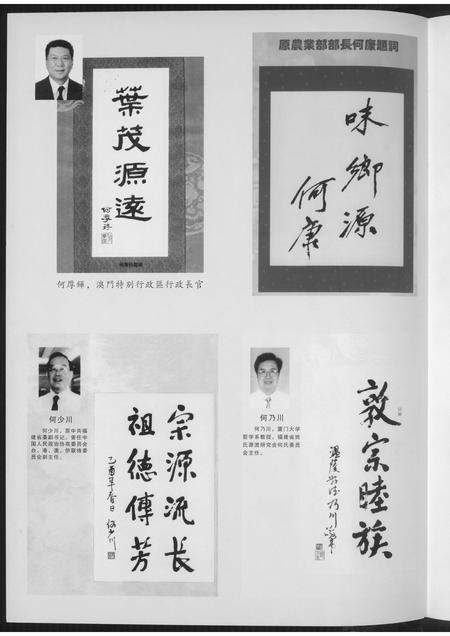 葉茂源遠
何厚鏵
何厚鏵，澳門特别行政區行政長官
原農業部部長何康題詞
味鄉源
何康
何少川
何少川，原中共福
建省委副书记。曾任中
国人民政治协商委员会
台、港、澳、侨联络委
员会副主任。
宗源流长
祖德傳芳
乙酉年春日 何少川
何乃川
何乃川，厦门大学
哲学系教授，福建省姓
氏源流研究会何氏委员
会主任。
敦宗睦族